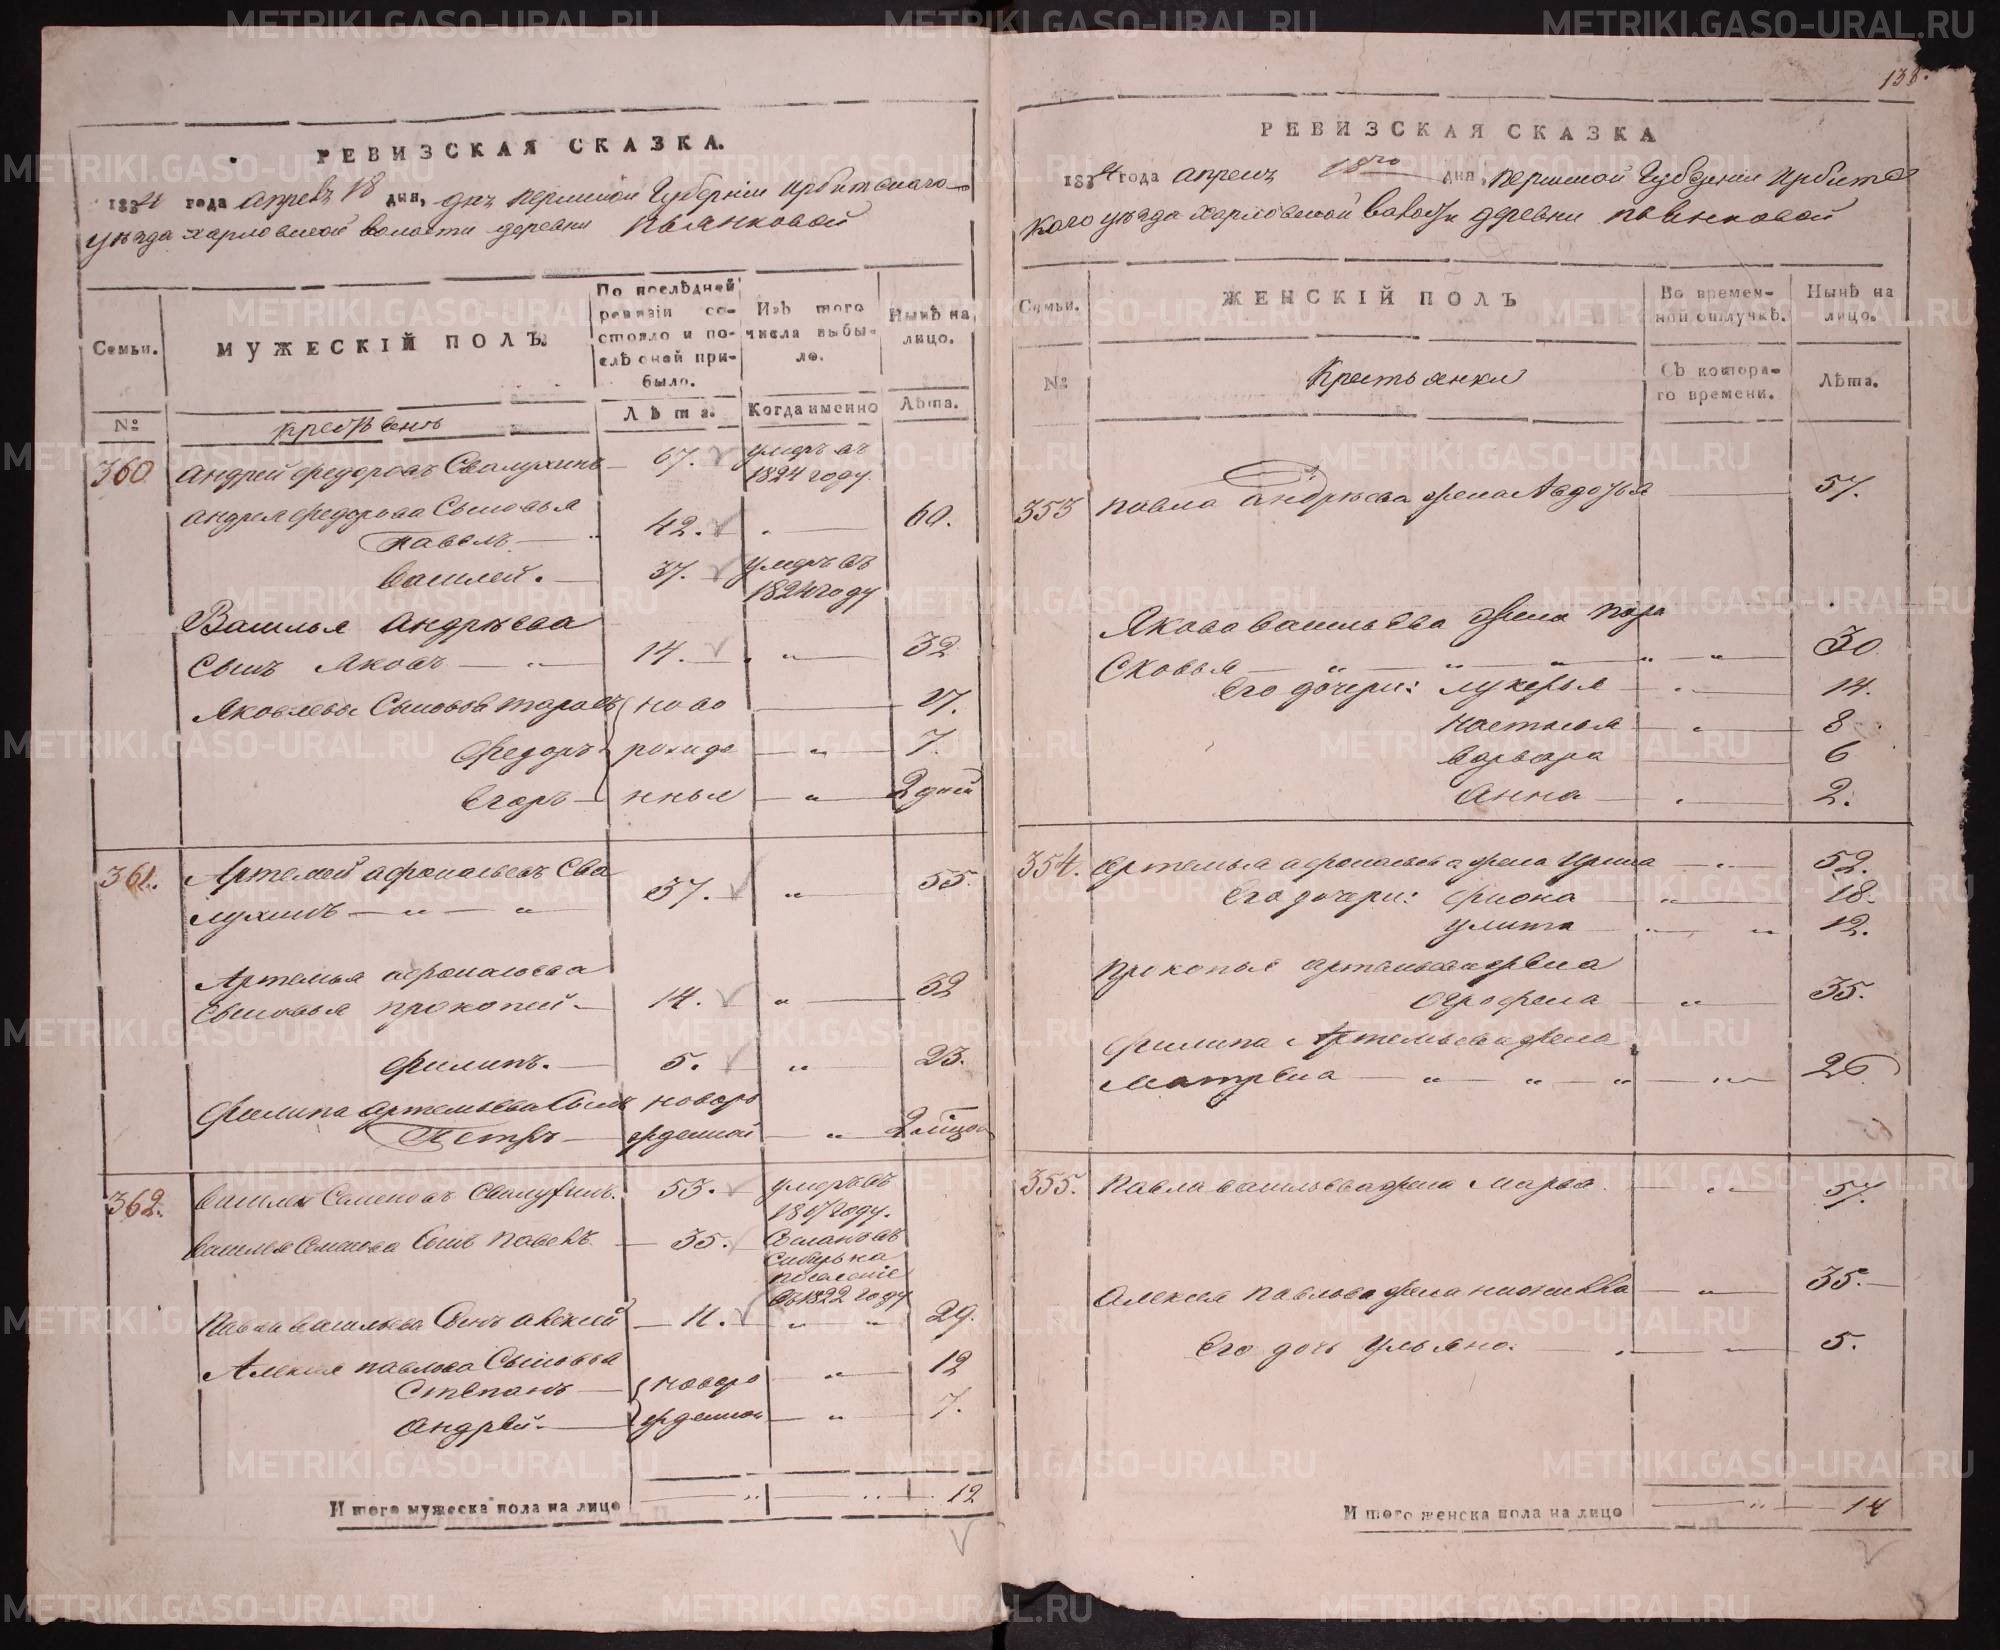 РЕВИЗСКАЯ СКАЗКА.
1834 года апреля 18 дня, Пермской Губернiи Ирбитскаго
уезда Харловской волости деревни Пьянковой
Семьи.
МУЖЕСКIЙ ПОЛЪ.
По послѣдней ревизiи состояло и послѣ оней прибыло.
Изъ того числа выбыло.
Нынѣ на лицо.
№
Крестьяне
Лѣта.
Когда именно
Лѣта.
360. Андрей Федоровъ Свалухинъ 67. умеръ въ 1824 году.
Андрея Федорова Сыновья
Павелъ 42. 60.
Василей. 37. умеръ въ 1824 году
Василья Андрѣева
Сынъ Яковъ 14. 32
Якова Сыновья Тарасъ ново 17.
Федоръ рожде 7.
Егоръ нныя 2 дней
361. Артемей Афонасьевъ Сва
лухинъ 37. 55.
Артемья Афонасьева
Сыновья Прокопей 14. 32
Филипъ. 5. 23.
Филипа Артемьева Сынъ новоро
Петръ жденной 2 мѣсяцовъ
362. Василей Семеновъ Свалухинъ. 53. умеръ въ 1817 году.
Василья Семенова Сынъ Павелъ 35. Сосланъ въ Сибирь на поселенiе въ 1822 году
Павла Васильева Сынъ Алексей 11. 29.
Алексея Павлова Сыновья
Степанъ новоро 12
Андрей. жденной 7.
Итого мужеска пола на лицо 12
138.
РЕВИЗСКАЯ СКАЗКА
1834 года апреля 18го дня, Пермской Губернiи Ирбитс
кого уезда Харловской волости деревни Пьянковой
Семьи.
ЖЕНСКIЙ ПОЛЪ
Во временной отлучкѣ.
Нынѣ на лицо.
№
Крестьянки
Съ котораго времени.
Лѣта.
353 Павла Андрѣева жена Авдотья 57.
Якова Васильева жена Пора
сковья 30.
Его дочери: Лукерья 14.
Настасья 8
Варвара 6
Анна 2.
354. Артемья Афонасьева жена Ирина 52.
Его дочери: Фиона 18.
Улита 12.
Прокопья Артемьева жена
Офрофена 35.
Филипа Артемьева жена
Матрена 26
355. Павла Васильева жена Марва 57.
Алексея Павлова жена 35.
Его дочь Ульяна. 5.
Итого женска пола на лицо 14
METRIKI.GASO-URAL.RU